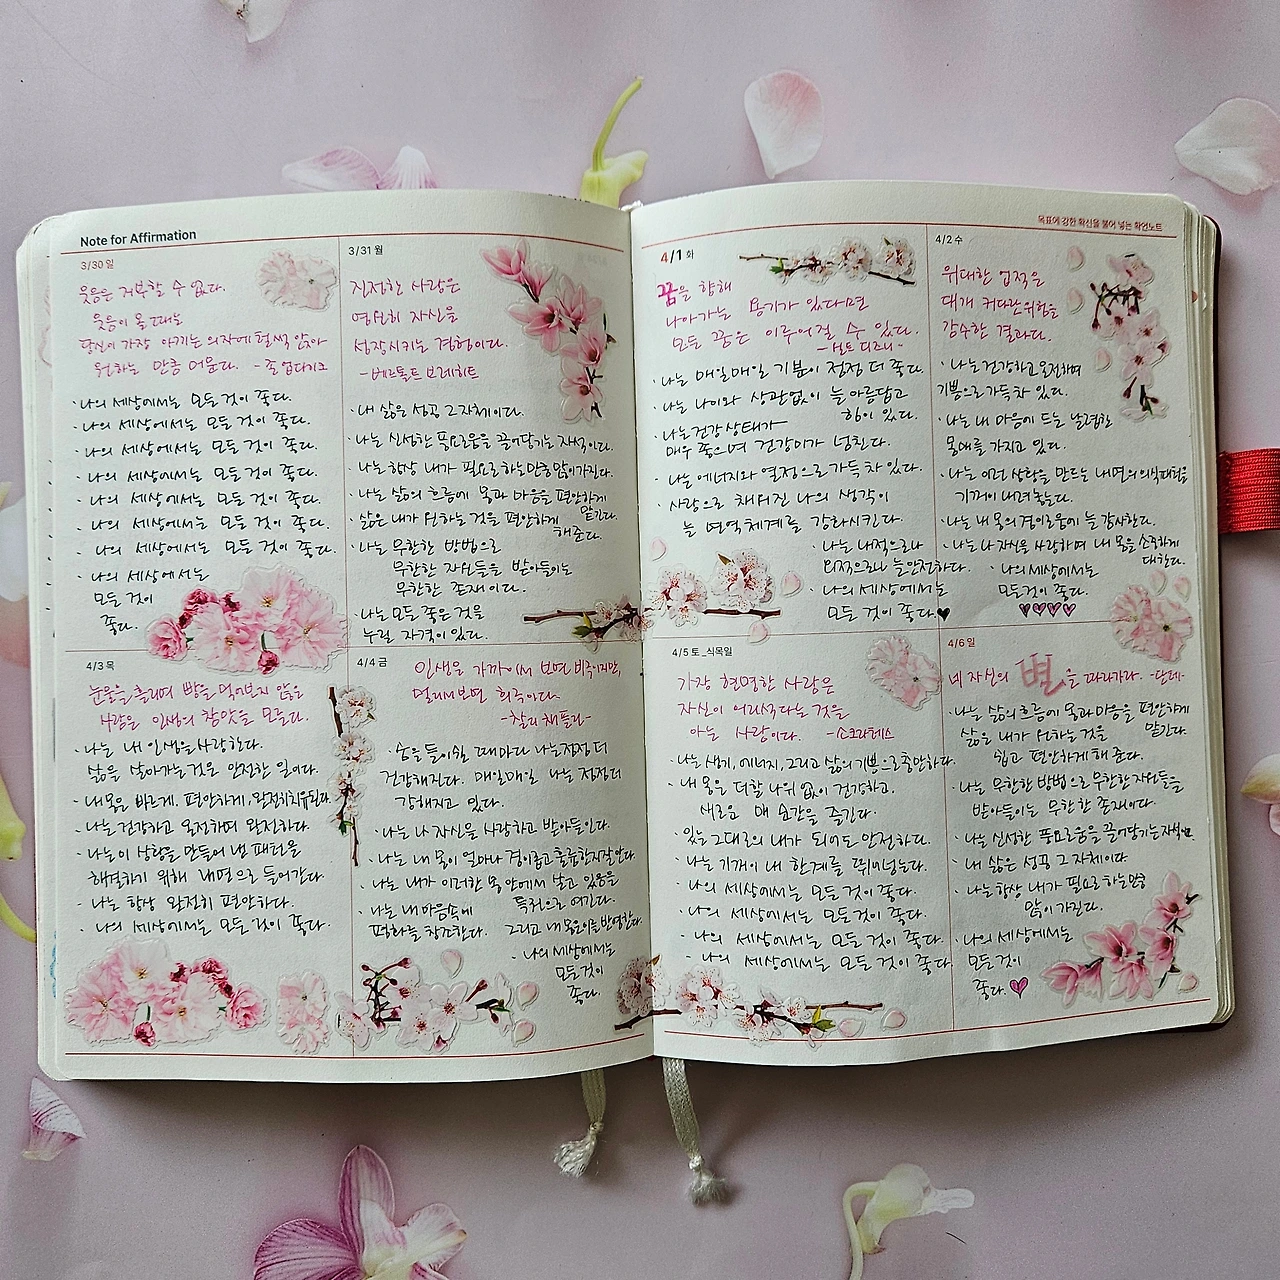 Note for Affirmation
목표에 강한 확신을 불어 넣는 확언노트
3/30 일
웃음은 거부할 수 없다.
웃음이 올 때는
당신이 가장 아끼는 의자에 털썩 앉아
원하는 만큼 머문다. -조 업다이크
·나의 세상에서는 모든 것이 좋다.
·나의 세상에서는 모든 것이 좋다.
·나의 세상에서는 모든 것이 좋다.
·나의 세상에서는 모든 것이 좋다.
·나의 세상에서는 모든 것이 좋다.
·나의 세상에서는 모든 것이 좋다.
·나의 세상에서는 모든 것이 좋다.
·나의 세상에서는
모든 것이
좋다.
3/31 월
진정한 사람은
영원히 자신을
성장시키는 경험이다.
-베르톨트 브레히트
·내 삶은 성공 그 자체이다.
·나는 신성한 풍요로움을 끌어당기는 자석이다.
·나는 항상 내가 필요로 하는 만큼 많이 가진다.
·나는 삶의 흐름에 몸과 마음을 편안하게
맡긴다.
·삶은 내가 원하는 것을 편안하게
해준다.
·나는 무한한 방법으로
무한한 자원들을 받아들이는
무한한 존재이다.
·나는 모든 좋은 것을
누릴 자격이 있다.
4/1 화
꿈을 향해
나아가는 용기가 있다면
모든 꿈은 이루어질 수 있다.
-월트 디즈니-
·나는 매일매일 기분이 점점 더 좋다.
·나는 나이와 상관없이 늘 아름답고
힘이 있다.
·나는 건강 상태가
매우 좋으며 건강미가 넘친다.
·나는 에너지와 열정으로 가득 차 있다.
·사랑으로 채워진 나의 생각이
늘 면역체계를 강화시킨다.
·나는 내적으로나
외적으로나 늘 안전하다.
·나의 세상에서는
모든 것이 좋다.♥
4/2 수
위대한 업적은
대개 커다란 위험을
감수한 결과다.
·나는 건강하고 온전하며
기쁨으로 가득 차 있다.
·나는 내 마음에 드는 날렵한
몸매를 가지고 있다.
·나는 이런 상황을 만드는 내면의 의식패턴을
기꺼이 내려놓는다.
·나는 내 몸의 경이로움에 늘 감사한다.
·나는 나 자신을 사랑하며 내 몸을 소중하게
대한다.
·나의 세상에서는
모든 것이 좋다.
♥♥♥♥
4/3 목
눈물을 흘리며 빵을 먹어보지 않은
사람은 인생의 참맛을 모른다.
·나는 내 인생을 사랑한다.
삶을 살아가는 것은 안전한 일이다.
·내 몸은 빠르게, 편안하게, 완전히 치유된다.
·나는 건강하고 온전하며 완전하다.
·나는 이 상황을 만들어 낸 패턴을
해결하기 위해 내면으로 들어간다.
·나는 항상 완전히 편안하다.
·나의 세상에서는 모든 것이 좋다.
4/4 금
인생은 가까이서 보면 비극이지만,
멀리서 보면 희극이다.
-찰리 채플린-
·숨을 들이쉴 때마다 나는 점점 더
건강해진다. 매일매일 나는 점점 더
강해지고 있다.
·나는 나 자신을 사랑하고 받아들인다.
·나는 내 몸이 얼마나 경이롭고 훌륭한지 잘 안다.
·나는 내가 이러한 몸 안에서 살고 있음을
특권으로 여긴다.
·나는 내 마음속에
평화를 창조한다. 그리고 내 몸은 이를 반영한다.
·나의 세상에서는
모든 것이
좋다.
4/5 토_식목일
가장 현명한 사람은
자신이 어리석다는 것을
아는 사람이다. -소크라테스
·나는 생기, 에너지, 그리고 삶의 기쁨으로 충만하다.
·내 몸은 더할 나위 없이 건강하고,
새로운 매 순간을 즐긴다.
·있는 그대로의 내가 되어도 안전하다.
·나는 기꺼이 내 한계를 뛰어넘는다.
·나의 세상에서는 모든 것이 좋다.
·나의 세상에서는 모든 것이 좋다.
·나의 세상에서는 모든 것이 좋다.
·나의 세상에서는 모든 것이 좋다.
4/6 일
네 자신의 별을 따라가라. -단테-
·나는 삶의 흐름에 몸과 마음을 편안하게
맡긴다.
삶은 내가 원하는 것을
쉽고 편안하게 해 준다.
·나는 무한한 방법으로 무한한 자원들을
받아들이는 무한한 존재이다.
·나는 신성한 풍요로움을 끌어당기는 자석
·내 삶은 성공 그 자체이다
·나는 항상 내가 필요로 하는 만큼
많이 가진다.
·나의 세상에서는
모든 것이
좋다.♥